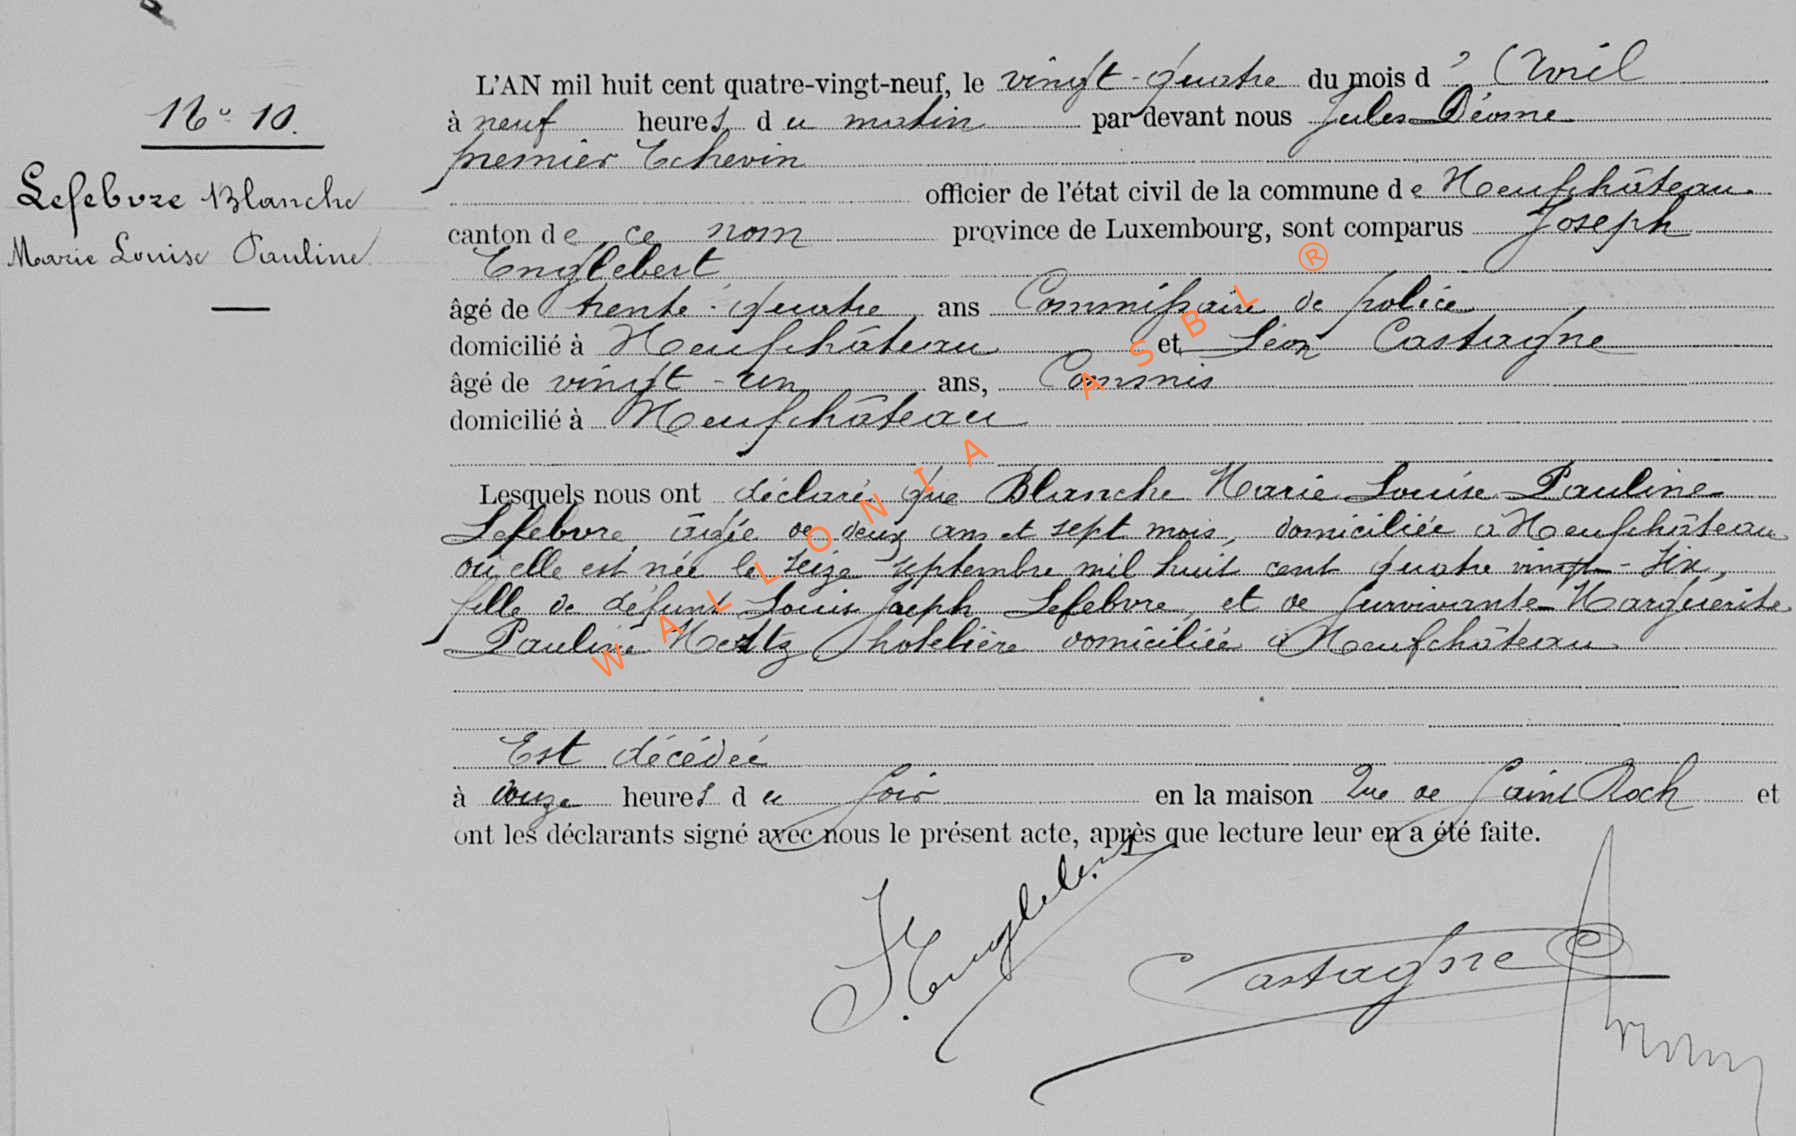 N° 10.
Lefebvre Blanche
Marie Louise Pauline
L'AN mil huit cent quatre-vingt-neuf, le vingt-quatre du mois d'Avril
à neuf heures du matin par devant nous Jules
premier Echevin
officier de l'état civil de la commune de Neufchâteau.
canton de ce nom province de Luxembourg, sont comparus Joseph
Englebert
âgé de trente-quatre ans Commissaire de police
domicilié à Neufchâteau et Léon Castagne
âgé de vingt-un ans, Commis
domicilié à Neufchâteau
Lesquels nous ont déclaré que Blanche Marie Louise Pauline
Lefebvre, âgée de deux ans et sept mois, domiciliée à Neufchâteau
où elle est née le seize septembre mil huit cent quatre vingt-six,
fille de défunt Louis Joseph Lefebvre, et de survivante Marguerite
Pauline hotelière domiciliée à Neufchâteau
Est décédée
à onze heures du soir en la maison Rue de Saint Roch et
ont les déclarants signé avec nous le présent acte, après que lecture leur en a été faite.
J. Englebert
Castagne
WALLONIA ASBL ®